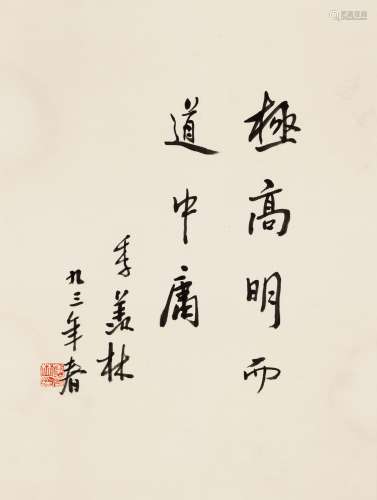 極高明而
道中庸
季羡林
九三年春